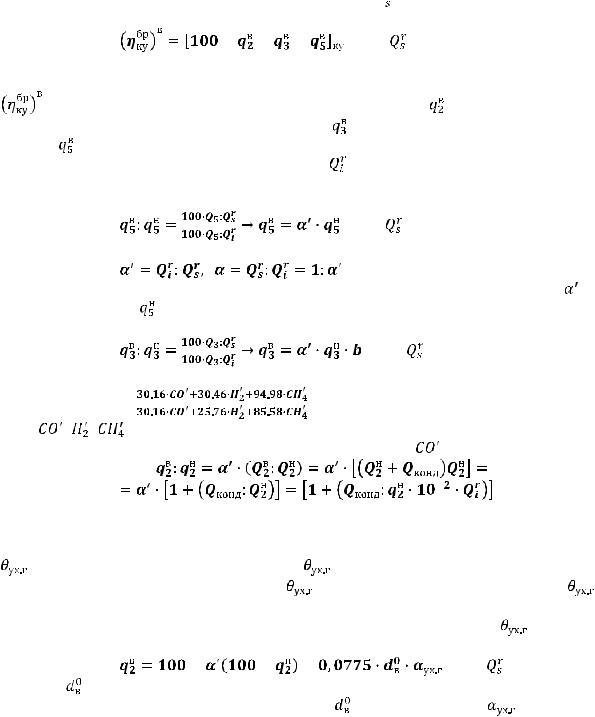 s
(η_ку^бр)^в = [100 q_2^в q_3^в q_5^в]_ку Q_s^r
(η_ку^бр)^в q_2^в
q_3^в
q_5^в
Q_i^r
q_5^в: q_5^н = 100·Q_5:Q_s^r / 100·Q_5:Q_i^r → q_5^в = α′ · q_5^н Q_s^r
α′ = Q_i^r: Q_s^r, α = Q_s^r: Q_i^r = 1: α′
α′
q_5^н
q_3^в: q_3^н = 100·Q_3:Q_s^r / 100·Q_3:Q_i^r → q_3^в = α′ · q_3^н · b Q_s^r
30,16·CO′+30,46·H_2′+94,98·CH_4′ / 30,16·CO′+25,76·H_2′+85,58·CH_4′
CO′ H_2′ CH_4′
CO′
q_2^в: q_2^н = α′ · (Q_2^в: Q_2^н) = α′ · [(Q_2^н + Q_конд)Q_2^н] =
= α′ · [1 + (Q_конд: Q_2^н)] = [1 + (Q_конд: q_2^н · 10 2 · Q_i^r)]
θ_ух.г θ_ух.г
θ_ух.г θ_ух.г
θ_ух.г
q_2^в = 100 α′(100 q_2^н) 0,0775 · d_в^0 · α_ух.г Q_s^r
d_в^0
d_в^0 α_ух.г